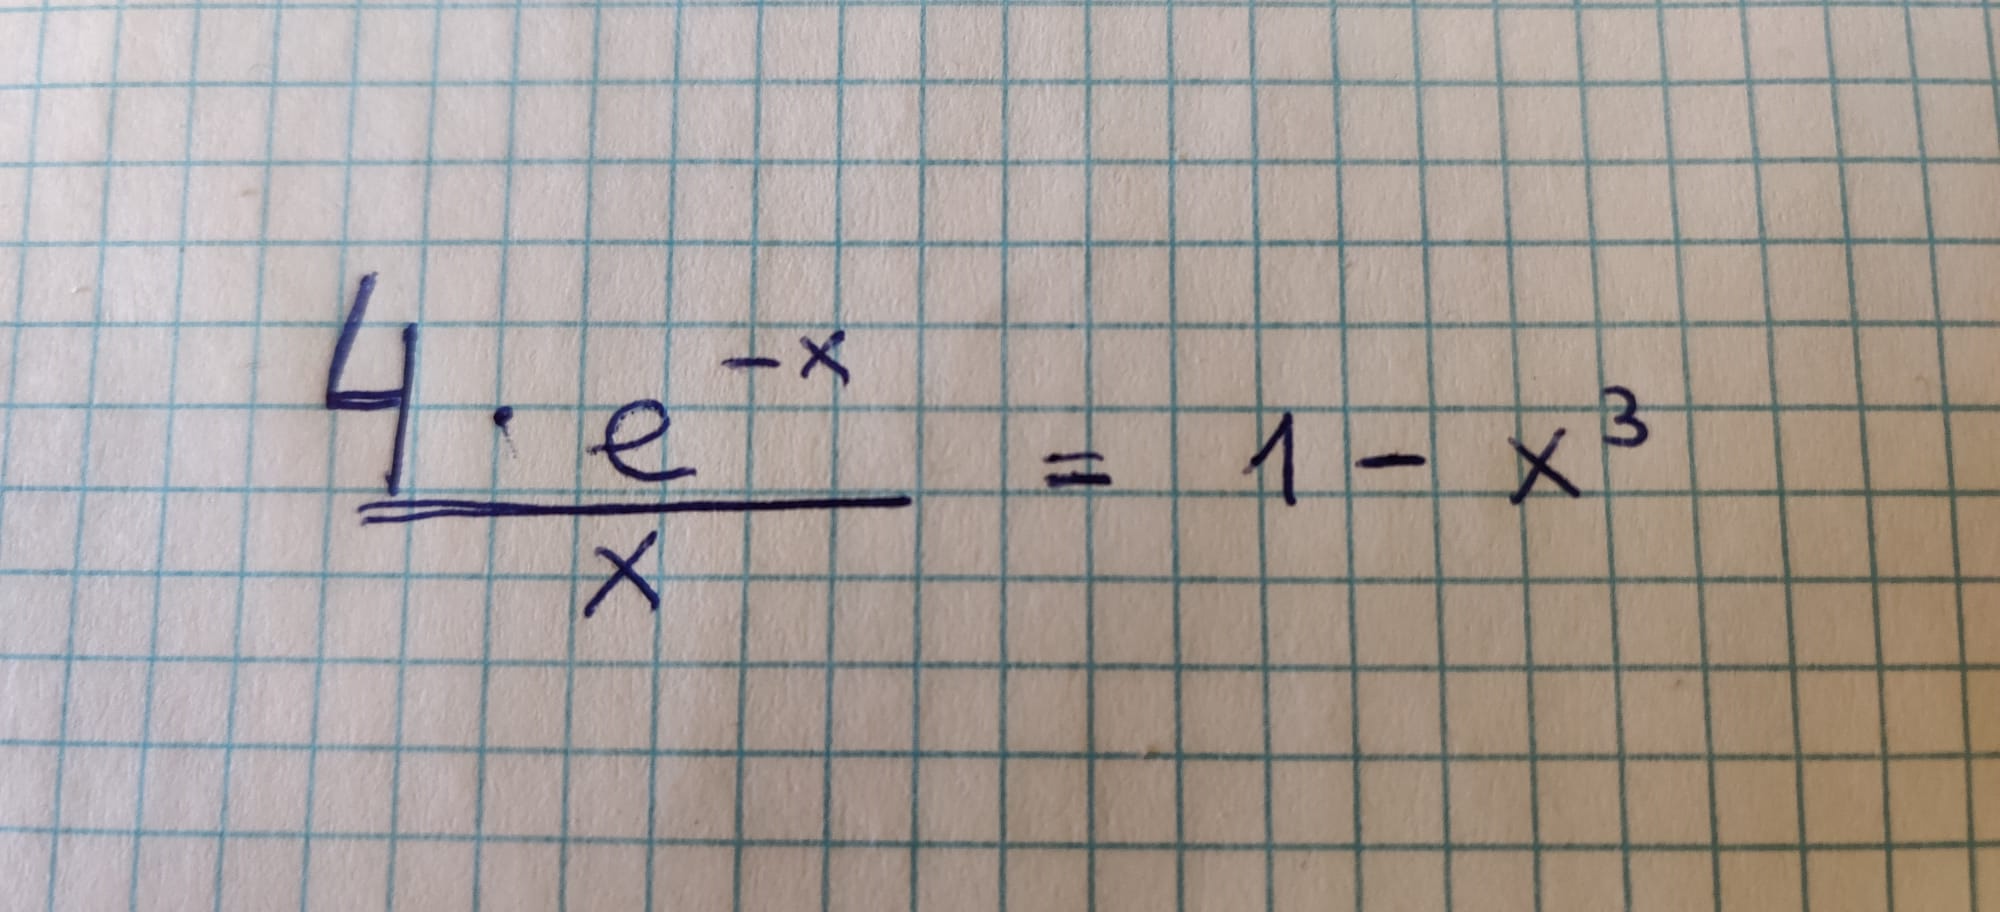 4 · e^{-x} / x = 1 - x^3